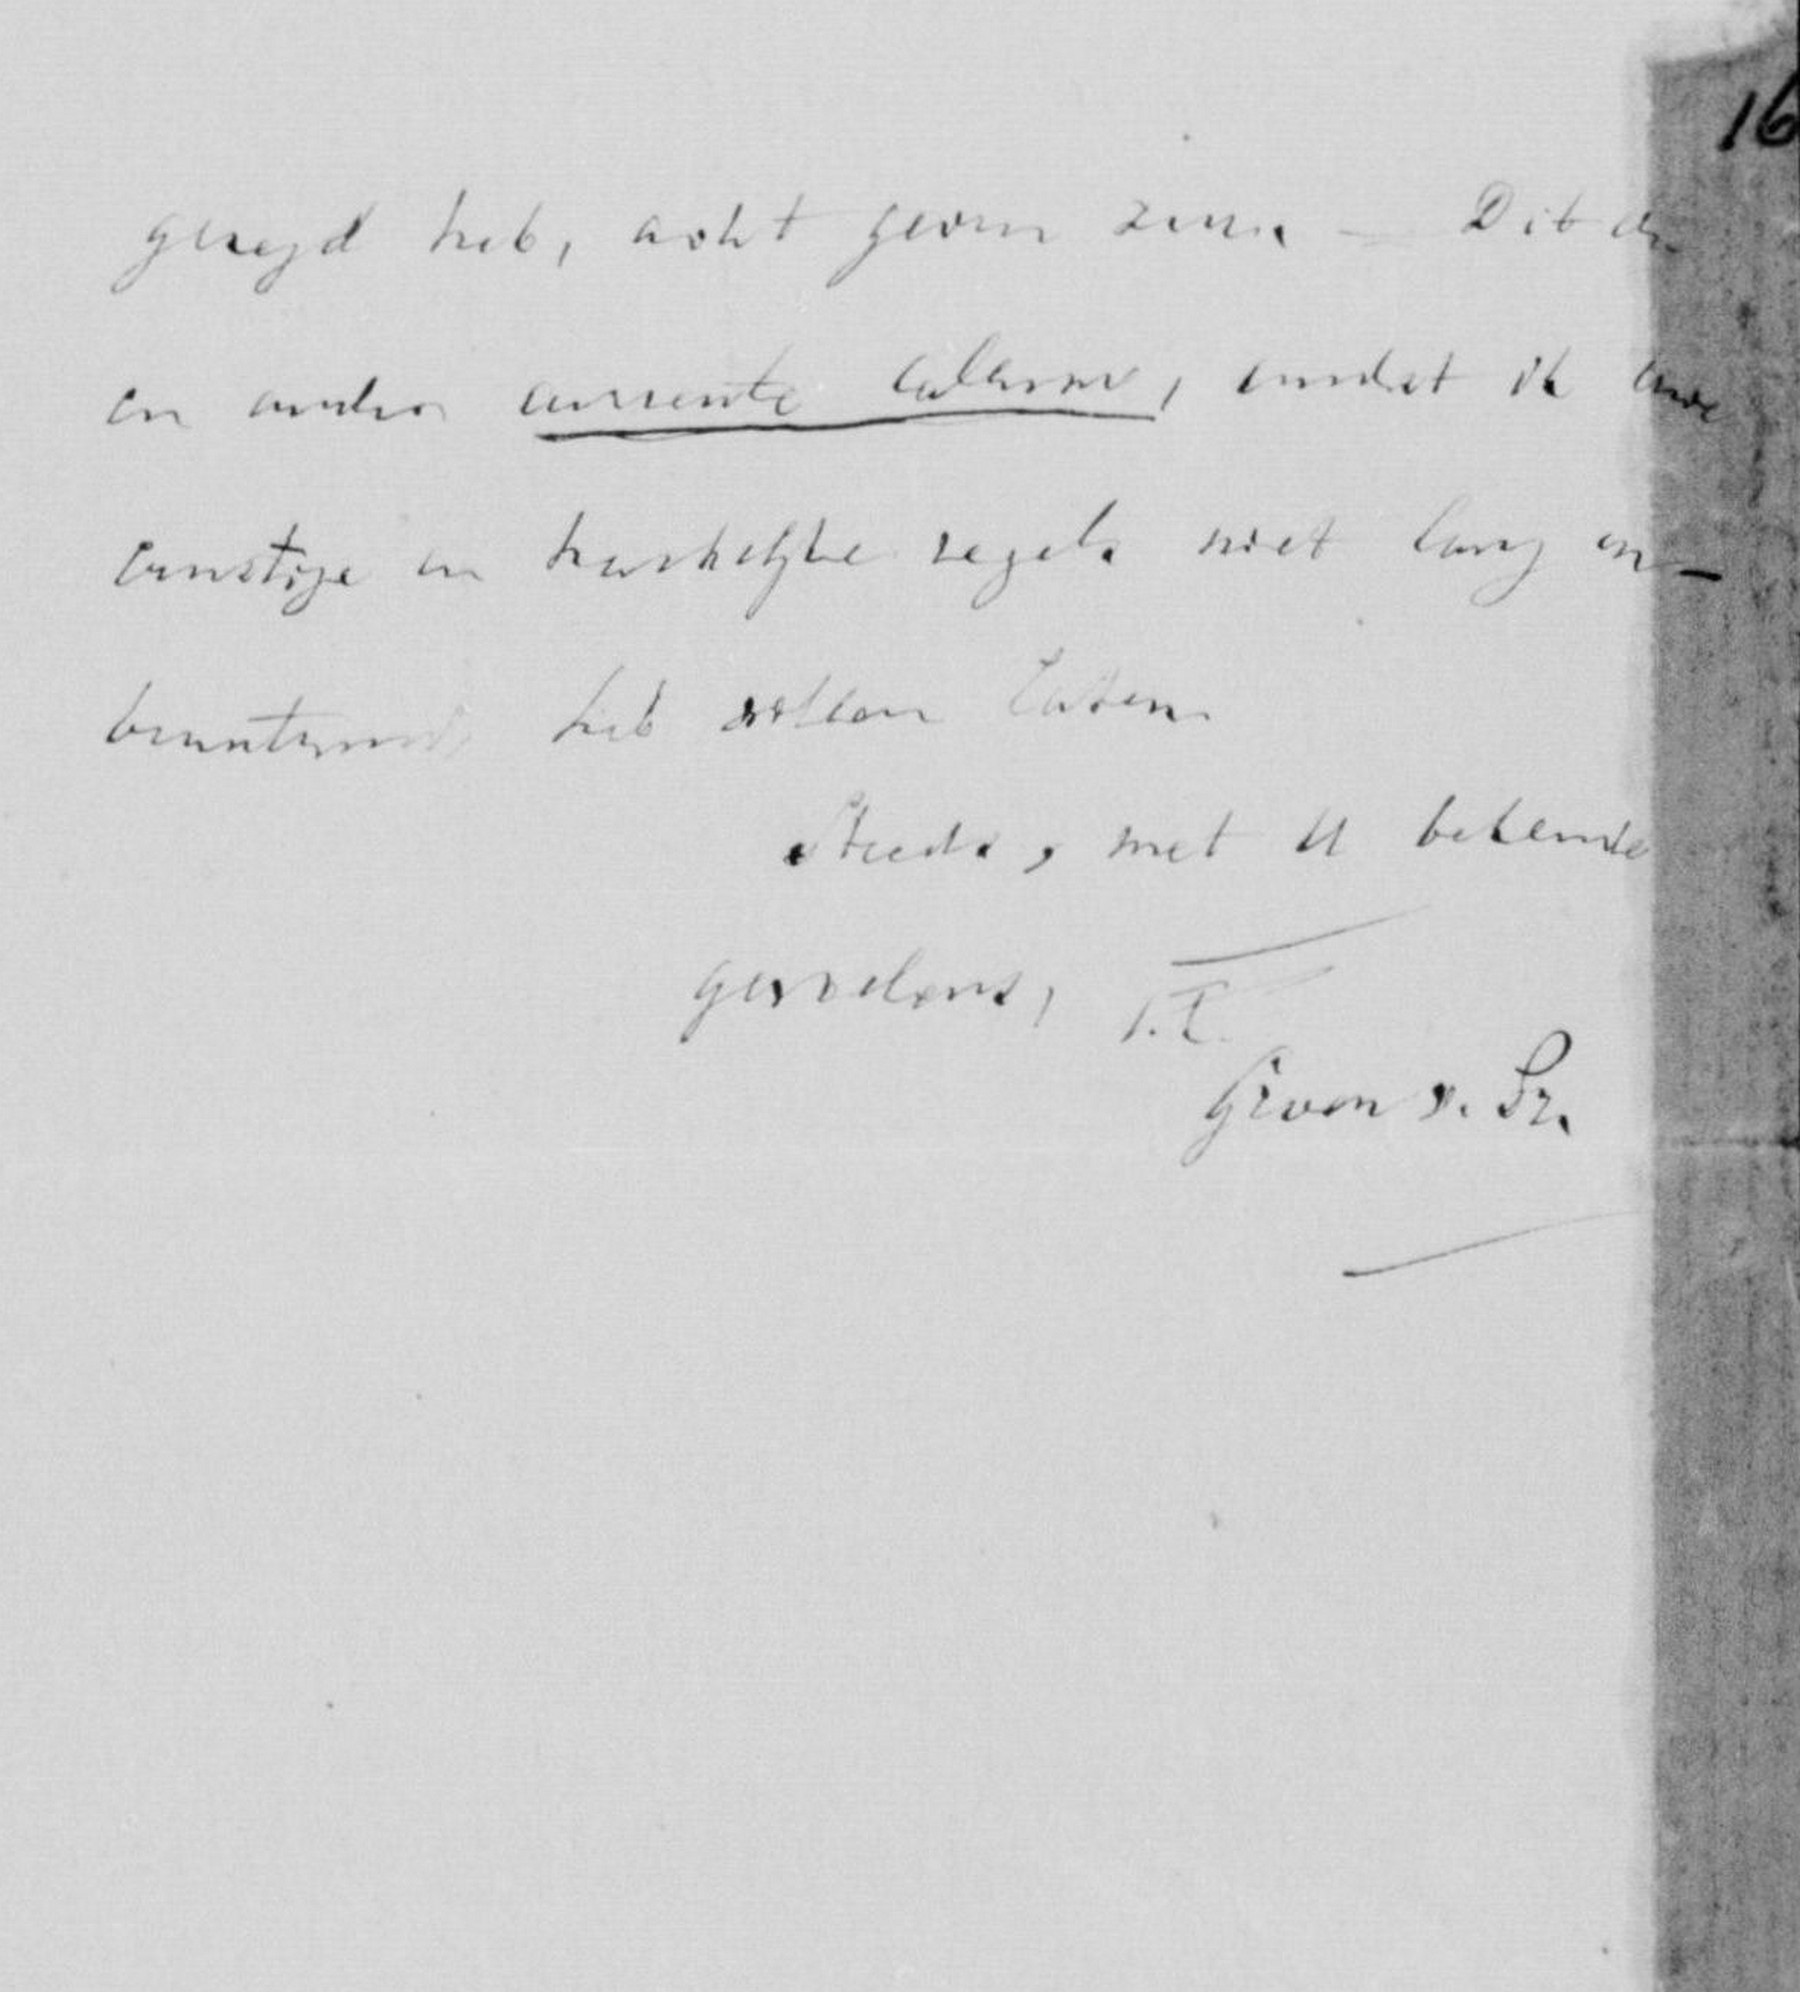 16
gezegd heb, acht geven zeer. — Dit en
en ander currente calamo, omdat ik uwe
ernstige en hartelijke regels niet lang on-
beantwoord heb willen laten.
Steeds, met U bekende
gevoelens, t.t.
Groen v. Pr.